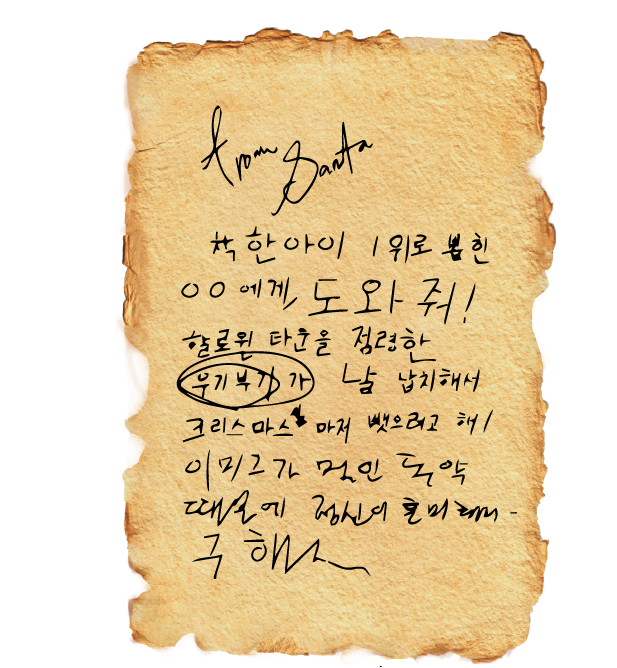 from Santa
착한아이 1위로 뽑힌
○○에게, 도와줘!
할로윈 타운을 점령한
우기부기가 날 납치해서
크리스마스 마저 뺏으려고 해!
이미 그가 먹인 독약
때문에 정신이 혼미해..
구해